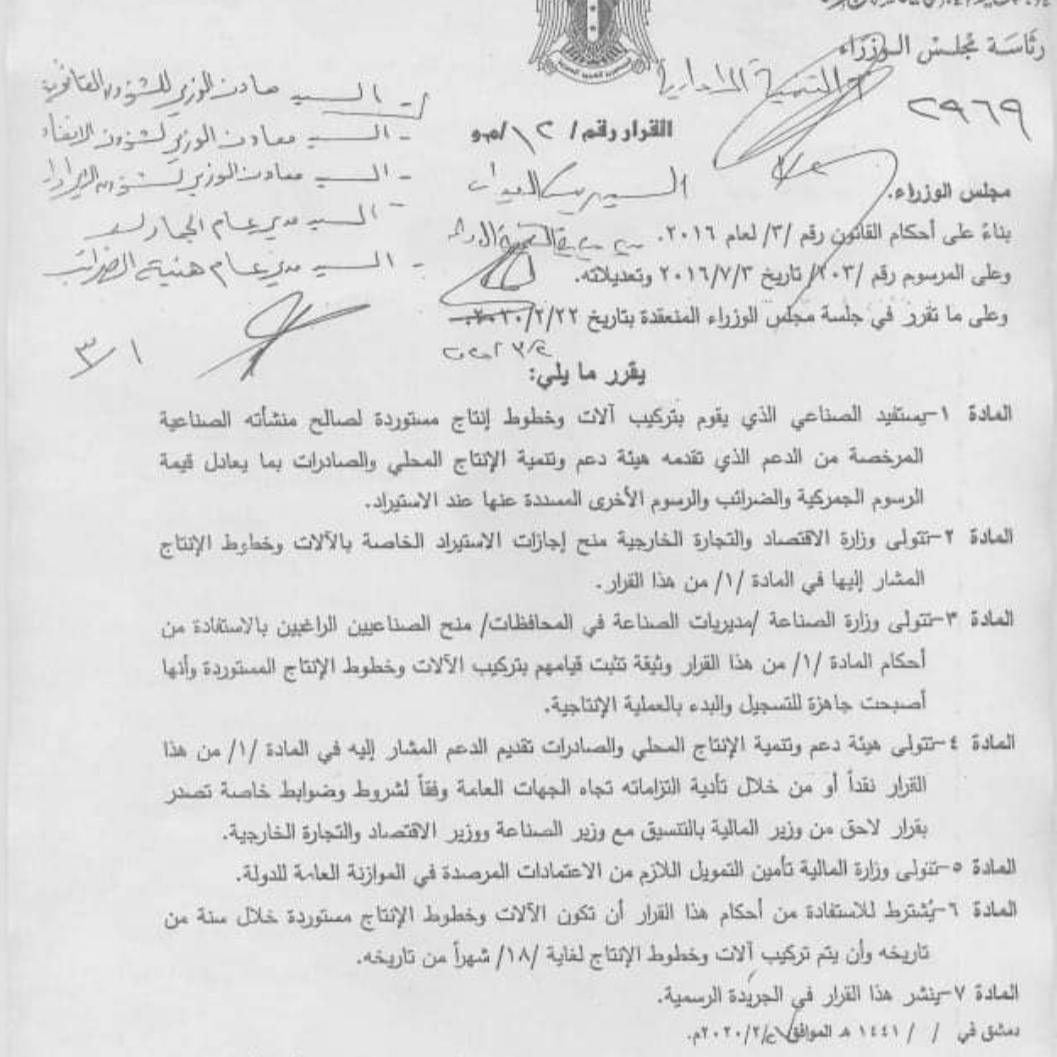 رئاسة مجلس الوزراء
٢٩٦٩
التنمية الادارية
القرار رقم / ١٢ /م.و
- السيد معاون الوزير للشؤون القانونية
- السيد معاون الوزير لشؤون الانفاق
- السيد معاون الوزير لشؤون الايرادات
- السيد مدير عام الجمارك
- السيد مدير عام هيئة الضرائب
السيد رئيس الديوان
مجلس الوزراء.
بناءً على أحكام القانون رقم /٣/ لعام ٢٠١٦.
وعلى المرسوم رقم /٢٠٣/ تاريخ ٢٠١٦/٧/٣ وتعديلاته.
وعلى ما تقرر في جلسة مجلس الوزراء المنعقدة بتاريخ ٢٠٢٠/٢/٢٢.
٣/١
يقرر ما يلي:
المادة ١-يستفيد الصناعي الذي يقوم بتركيب آلات وخطوط إنتاج مستوردة لصالح منشأته الصناعية
المرخصة من الدعم الذي تقدمه هيئة دعم وتنمية الإنتاج المحلي والصادرات بما يعادل قيمة
الرسوم الجمركية والضرائب والرسوم الأخرى المسددة عنها عند الاستيراد.
المادة ٢-تتولى وزارة الاقتصاد والتجارة الخارجية منح إجازات الاستيراد الخاصة بالآلات وخطوط الإنتاج
المشار إليها في المادة /١/ من هذا القرار.
المادة ٣-تتولى وزارة الصناعة /مديريات الصناعة في المحافظات/ منح الصناعيين الراغبين بالاستفادة من
أحكام المادة /١/ من هذا القرار وثيقة تثبت قيامهم بتركيب الآلات وخطوط الإنتاج المستوردة وأنها
أصبحت جاهزة للتسجيل والبدء بالعملية الإنتاجية.
المادة ٤-تتولى هيئة دعم وتنمية الإنتاج المحلي والصادرات تقديم الدعم المشار إليه في المادة /١/ من هذا
القرار نقداً أو من خلال تأدية التزاماته تجاه الجهات العامة وفقاً لشروط وضوابط خاصة تصدر
بقرار لاحق من وزير المالية بالتنسيق مع وزير الصناعة ووزير الاقتصاد والتجارة الخارجية.
المادة ٥-تتولى وزارة المالية تأمين التمويل اللازم من الاعتمادات المرصدة في الموازنة العامة للدولة.
المادة ٦-يُشترط للاستفادة من أحكام هذا القرار أن تكون الآلات وخطوط الإنتاج مستوردة خلال سنة من
تاريخه وأن يتم تركيب آلات وخطوط الإنتاج لغاية /١٨/ شهراً من تاريخه.
المادة ٧-ينشر هذا القرار في الجريدة الرسمية.
دمشق في / / ١٤٤١ هـ الموافق /٢/٢٠٢٠م.